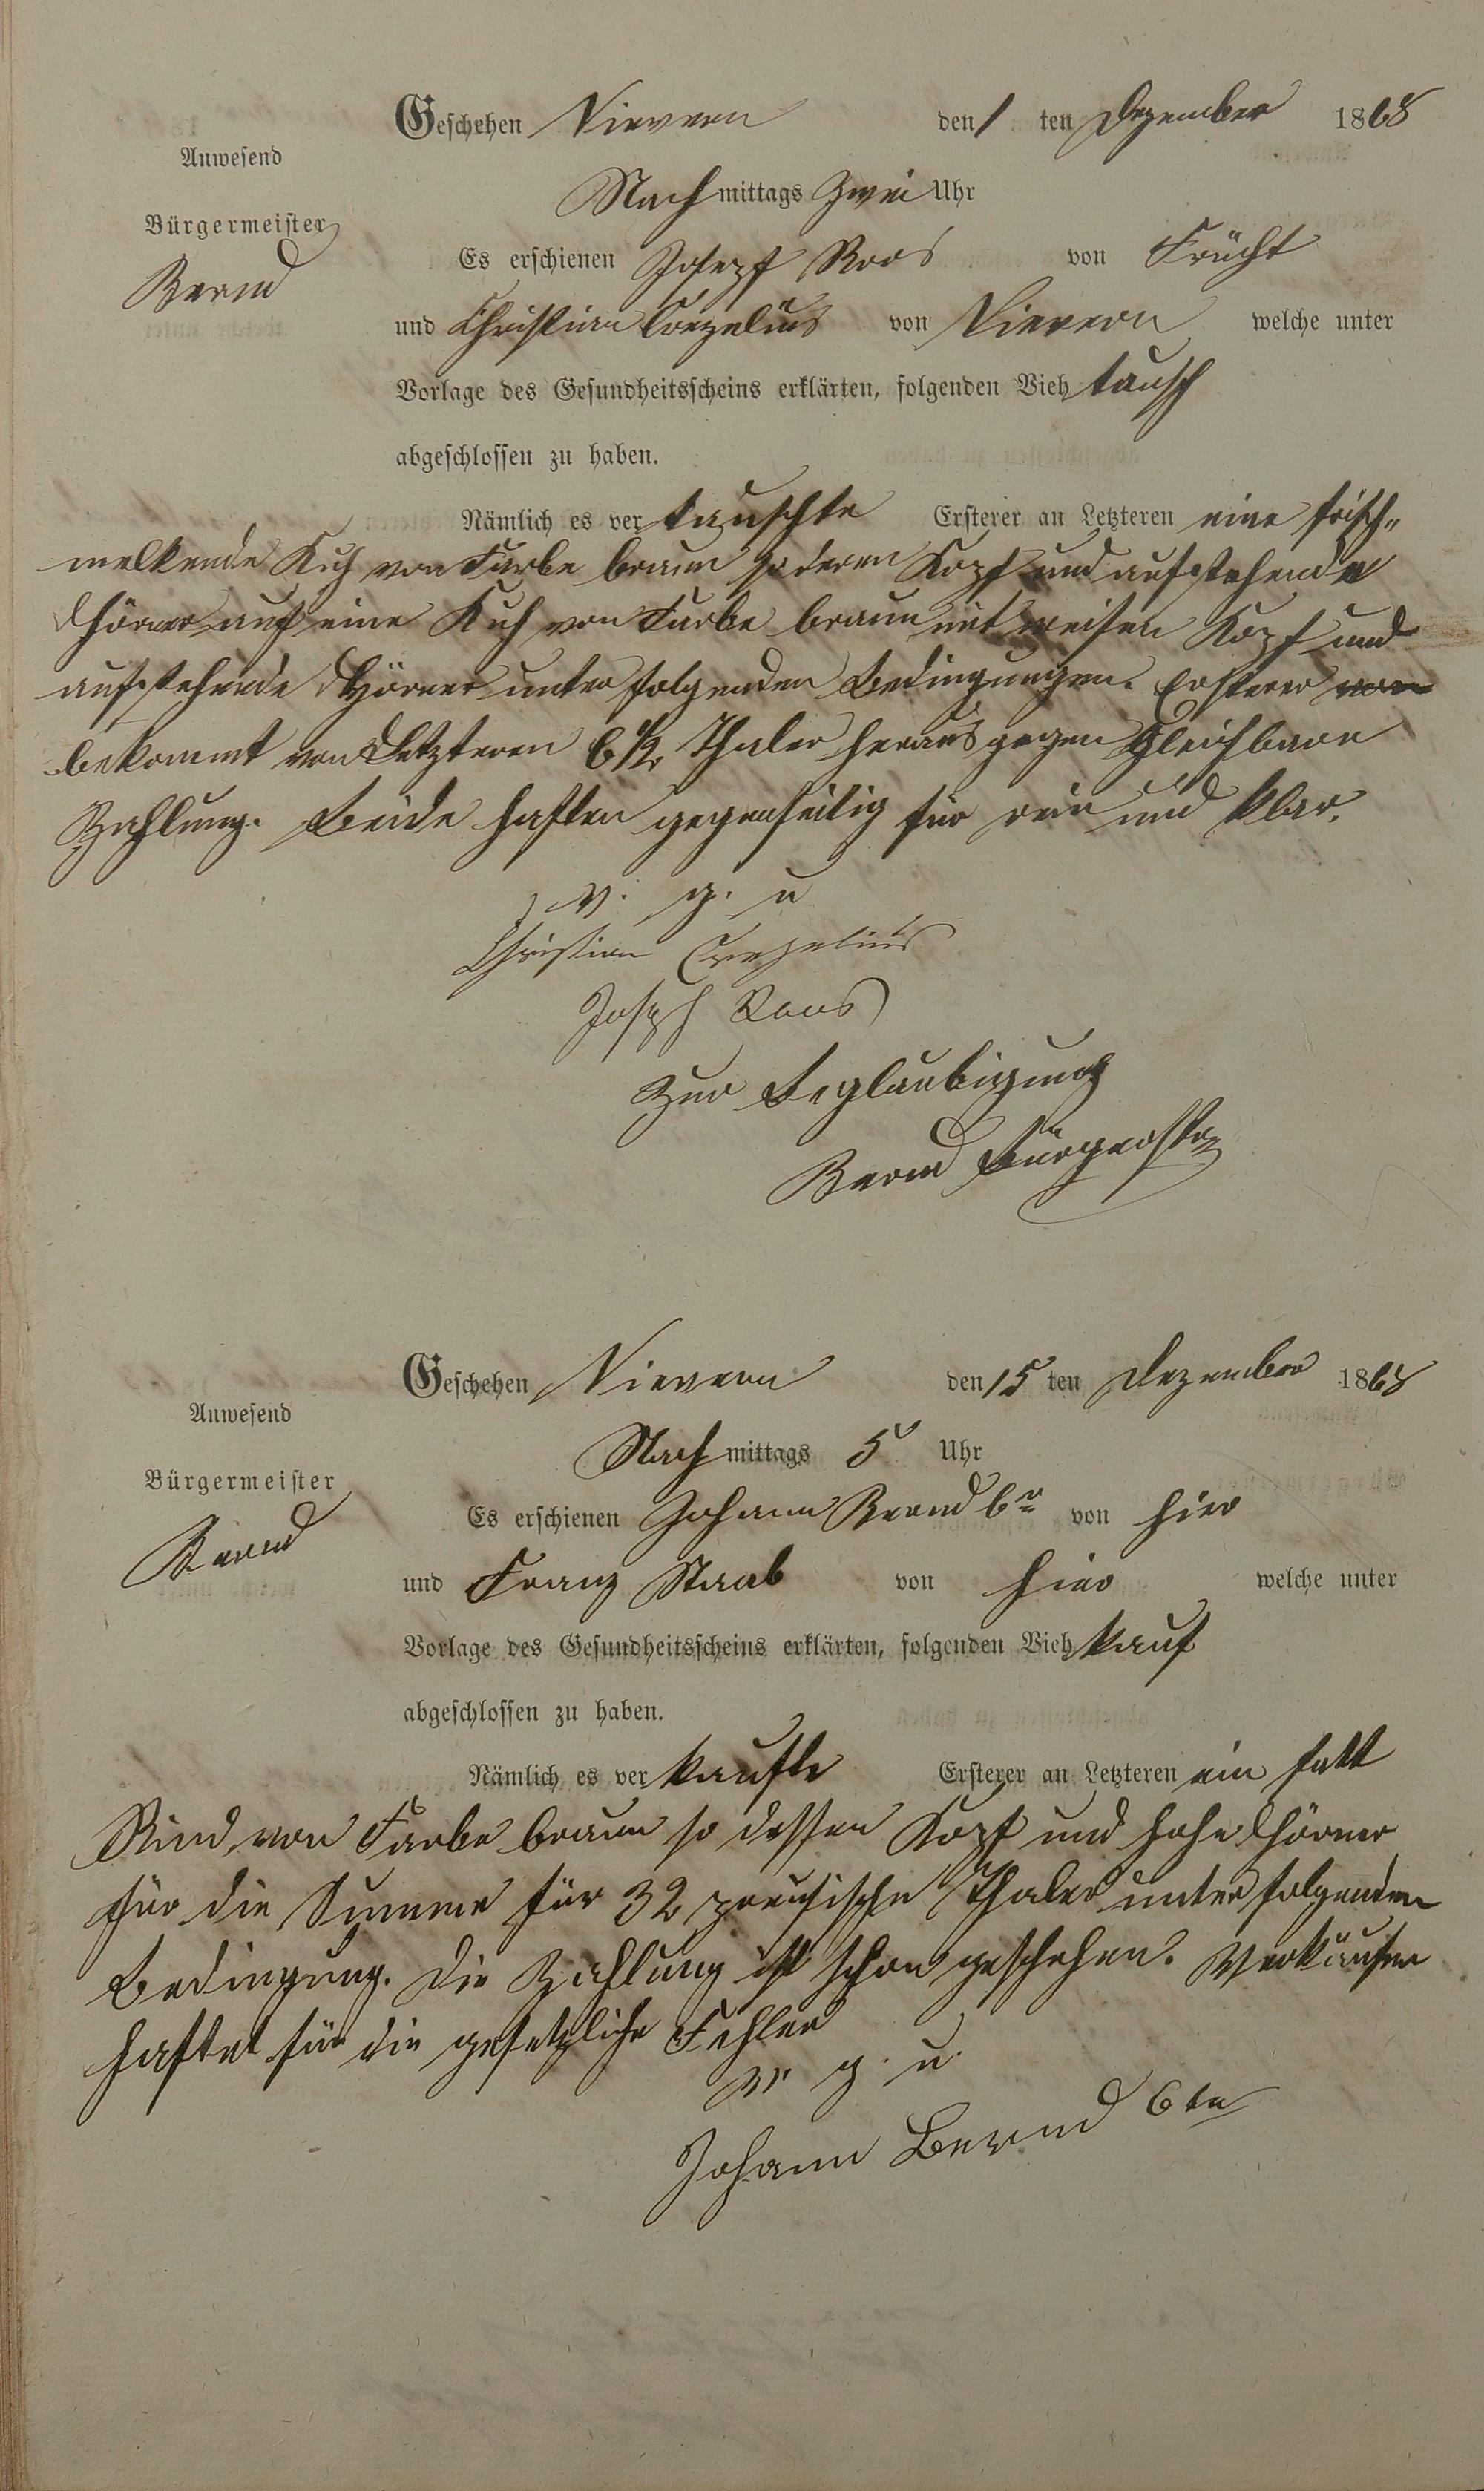 Geschehen Nievern den 1 ten Dezember 1868
Anwesend
Nachmittags Zwei Uhr
Bürgermeister
Bernd
Es erschienen Joseph Roos von Frücht
und Christian Crezelius von Nievern welche unter
Vorlage des Gesundheitsscheins erklärten, folgenden Viehtausch
abgeschlossen zu haben.
Nämlich es vertauschte Ersterer an Letzteren eine frisch„
melkende Kuh von Farbe braun so deren Kopf und aufstehende
Hörner auf eine Kuh von Farbe braun mit weisen Kopf und
aufstehende Hörner unter folgenden Bedingungen. Ersterer
bekommt von Letzteren 6 1/2 Thaler heraus gegen Gleichbare
Zahlung. Beide haften gegenseitig für rein und klar.
v. g. u
Christian Crezelius
Joseph Roos
Zur Beglaubigung
Bernd Bürgerstr
Geschehen Nievern den 15 ten Dezember 1868
Anwesend
Nachmittags 5 Uhr
Bürgermeister
Bernd
Es erschienen Johann Bernd 6r von hier
und Franz Staab von hier welche unter
Vorlage des Gesundheitsscheins erklärten, folgenden Viehkauf
abgeschlossen zu haben.
Nämlich es verkaufte Ersterer an Letzteren ein fett
Rind, von Farbe braun so dessen Kopf und hohe Hörner
für die Summe für 32 preusische Thaler unter folgenden
Bedingung. Die Zahlung ist schon geschehen. Verkäufer
haftet für die gesetzliche Fehler
v. g. u.
Johann Bernd 6te